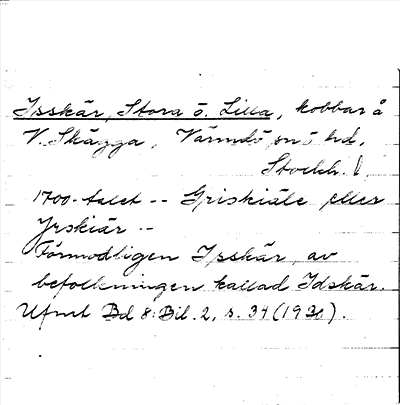 Isskär, Stora o. Lilla, kobbar å
V. Skägga, Värmdö sn o hd,
Stockh. l.
1700-talet -- Griskiäle eller
Yrskiär --
Förmodligen Isskär, av
befolkningen kallad Idskär.
Ufmt Bd 8: Bil. 2, s. 34 (1930).